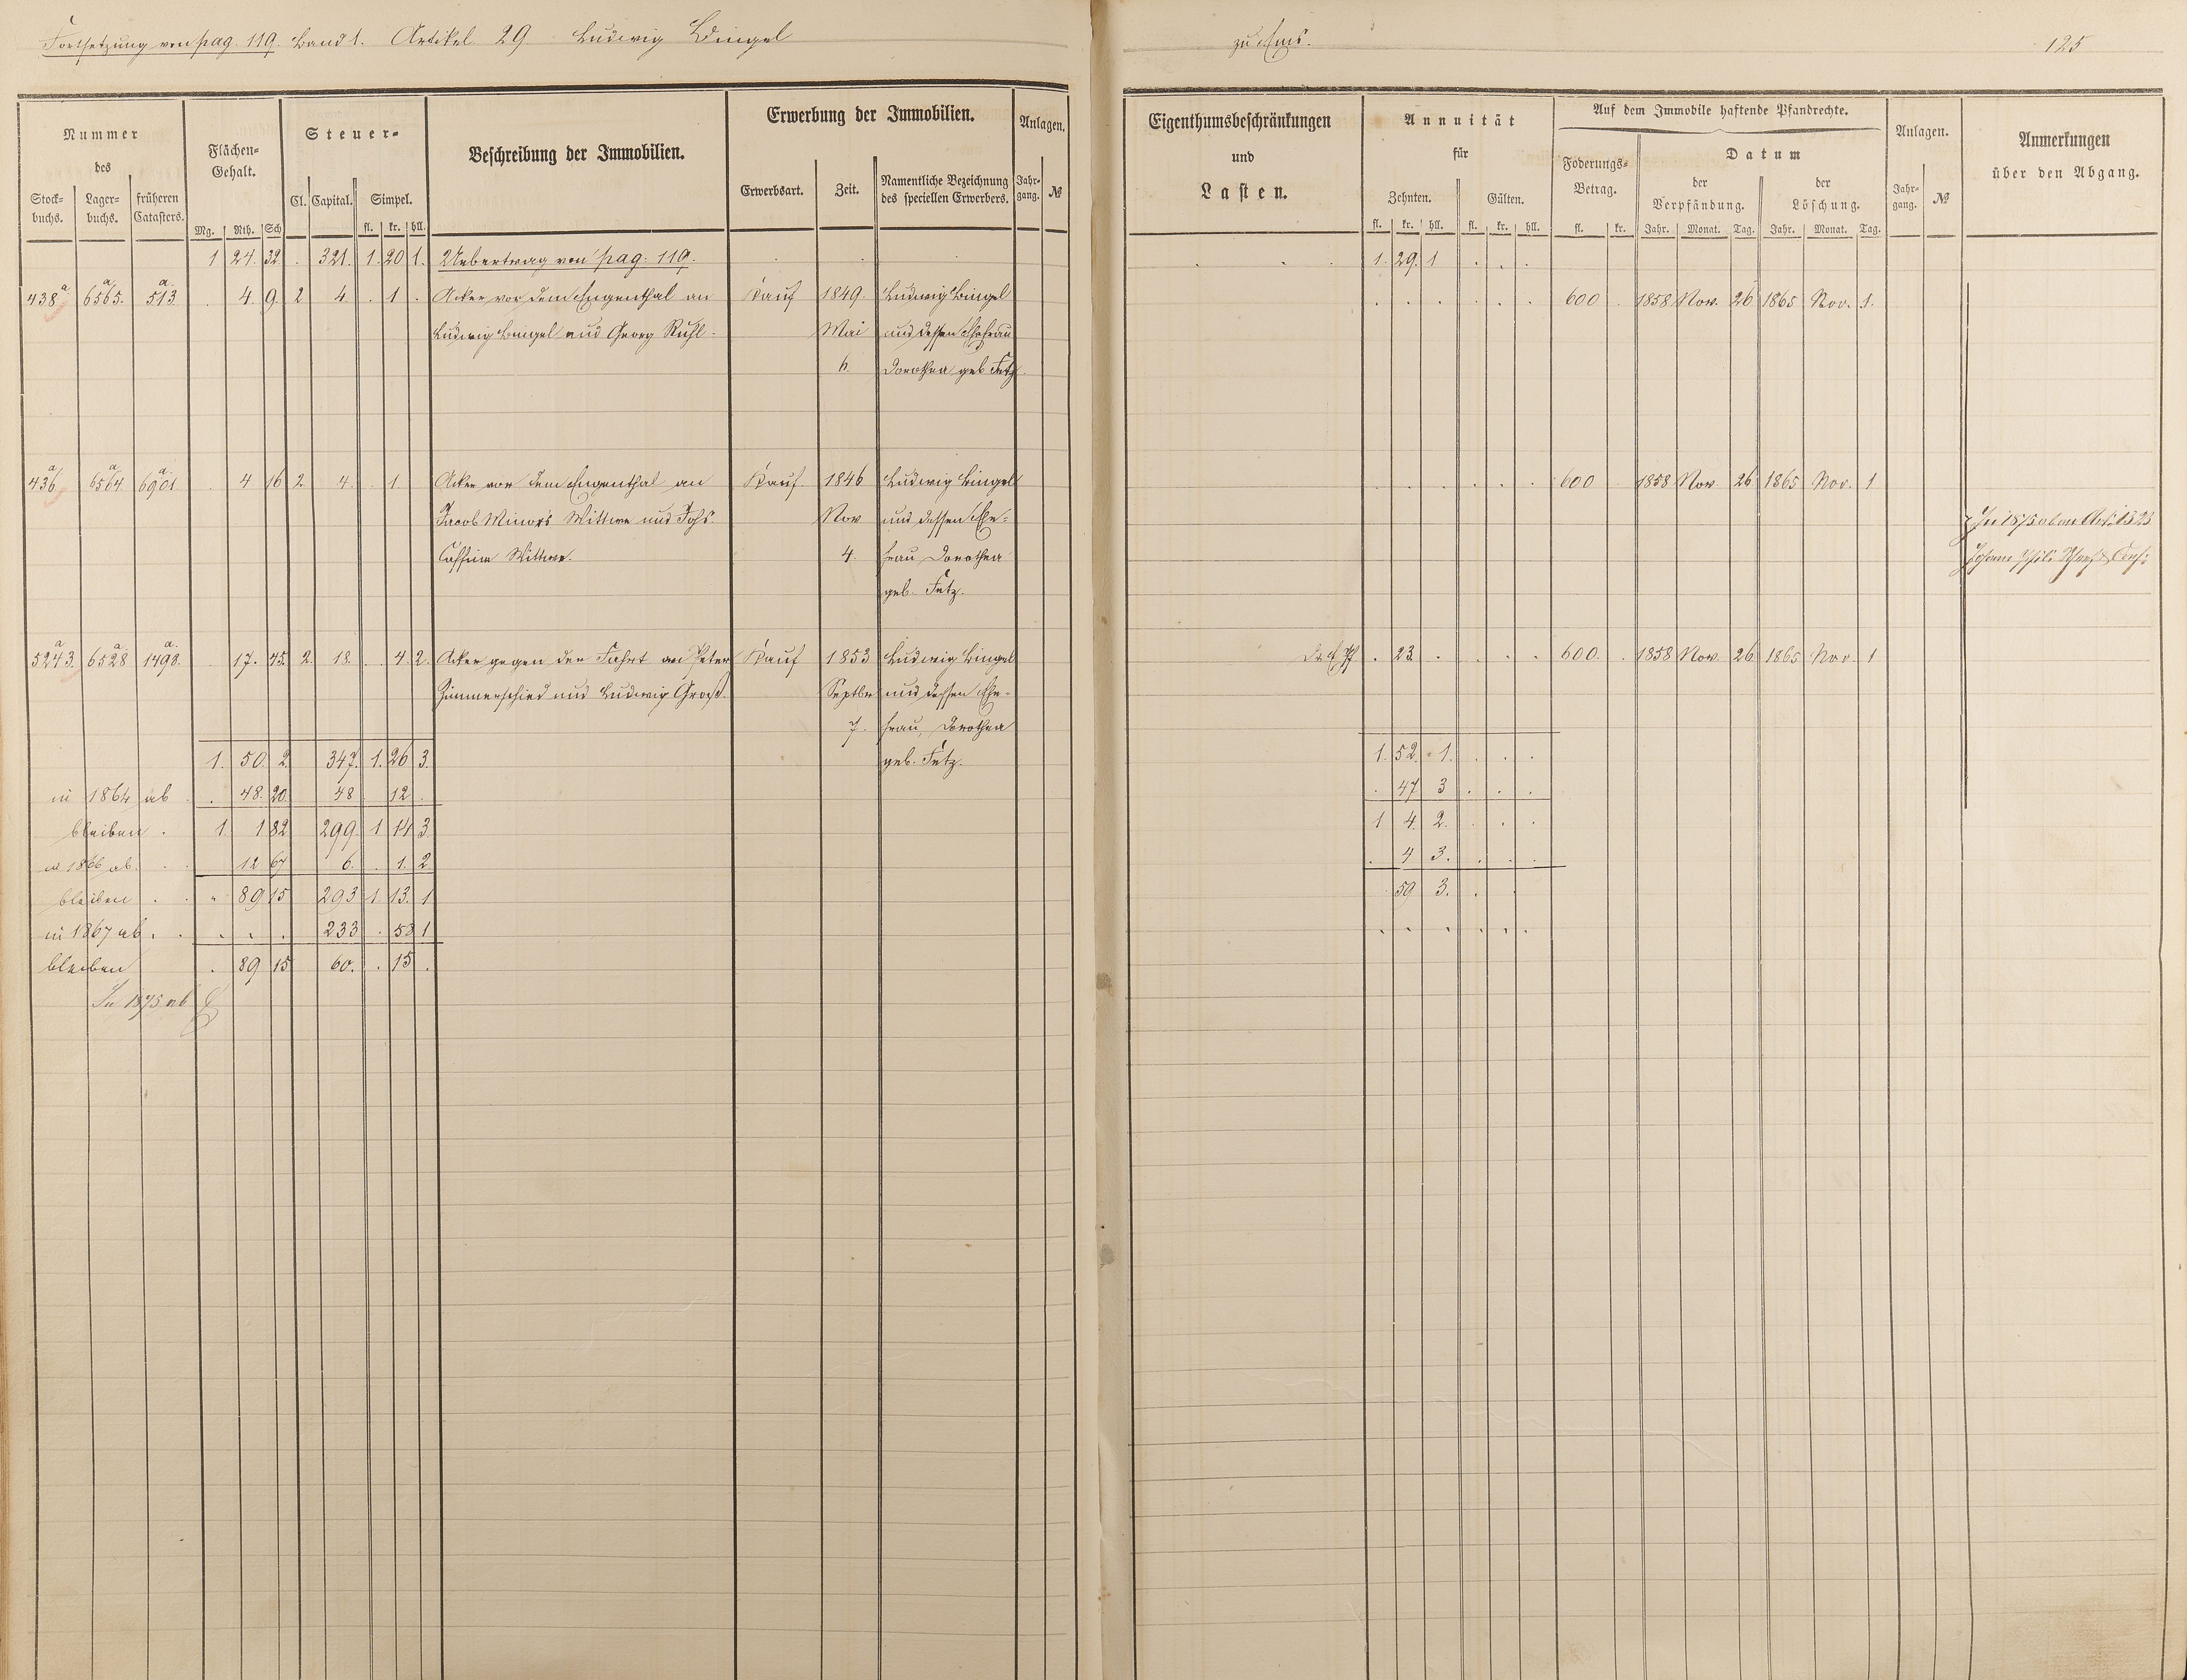 Fortsetzung von pag. 119. Band 1. Artikel 29 Ludwig Bingel zu Ems. 125
Nummer des
Stock-buchs. Lager-buchs. früheren Catasters.
Flächen-Gehalt.
Mg. Rth. Sch
Steuer-
Cl. Capital. Simpel.
fl. kr. hll.
Beschreibung der Immobilien.
Erwerbung der Immobilien.
Erwerbsart. Zeit. Namentliche Bezeichnung des speciellen Erwerbers.
Anlagen.
Jahr-gang. №
Eigenthumsbeschränkungen
und
Lasten.
Annuität
für
Zehnten. Gülten.
fl. kr. hll. fl. kr. hll.
Auf dem Immobile haftende Pfandrechte.
Foderungs-Betrag. Datum
der Verpfändung. der Löschung.
fl. kr. Jahr. Monat. Tag. Jahr. Monat. Tag.
Anlagen.
Jahr-gang. №
Anmerkungen
über den Abgang.
1 24. 32 . 321. 1. 20 1. Uebertrag von pag. 119. . . . 1. 29. 1 . . .
438a 6565.a 513.a . 4. 9. 2 4. . 1 . Acker vor dem Engenthal an Kauf 1849. Ludwig Bingel . . . . . . 600 . 1858 Nov. 26 1865 Nov. 1.
Ludwig Bingel und Georg Rühl. Mai und dessen Ehefrau
6. Dorothea geb. Fetz.
436a 6564a 6901a . 4 16 2 4. . 1 Acker vor dem Engenthal an Kauf 1846 Ludwig Bingel . . . . . . 600 1858 Nov. 26 1865 Nov. 1
Jacob Minor's Wittwe und Johs. Nov und dessen Ehe- In 1875 ab an Art: 1323
Wittwe. 4. frau Dorothea Johann Phil:
geb. Fetz.
5243.a 6528a 1498.a . 17. 45. 2. 18. . 4. 2. Acker gegen der Fahrt an Peter Kauf 1853 Ludwig Bingel . 23. . . . . 600. . 1858 Nov. 26 1865 Nov. 1
Zimmerschied und Ludwig Groß. Septbr und dessen Ehe-
7. frau, Dorothea
1. 50. 2. 347. 1. 26 3. geb. Fetz. 1. 52. 1. . . .
in 1864 ab . . 48. 20. 48 12 . . 47 3 . . .
bleiben . 1. 1 82 299. 1 14 3. 1 4. 2. . . .
in 1866 ab. . 12 67 6. . 1. 2 . 4 3. . . .
bleiben . . . 89 15 293 1. 13. 1 59 3. .
in 1867 ab . . . . . 233 . 58 1 . . . . . .
bleiben . 89 15 60. . 15 .
In 1875 ab